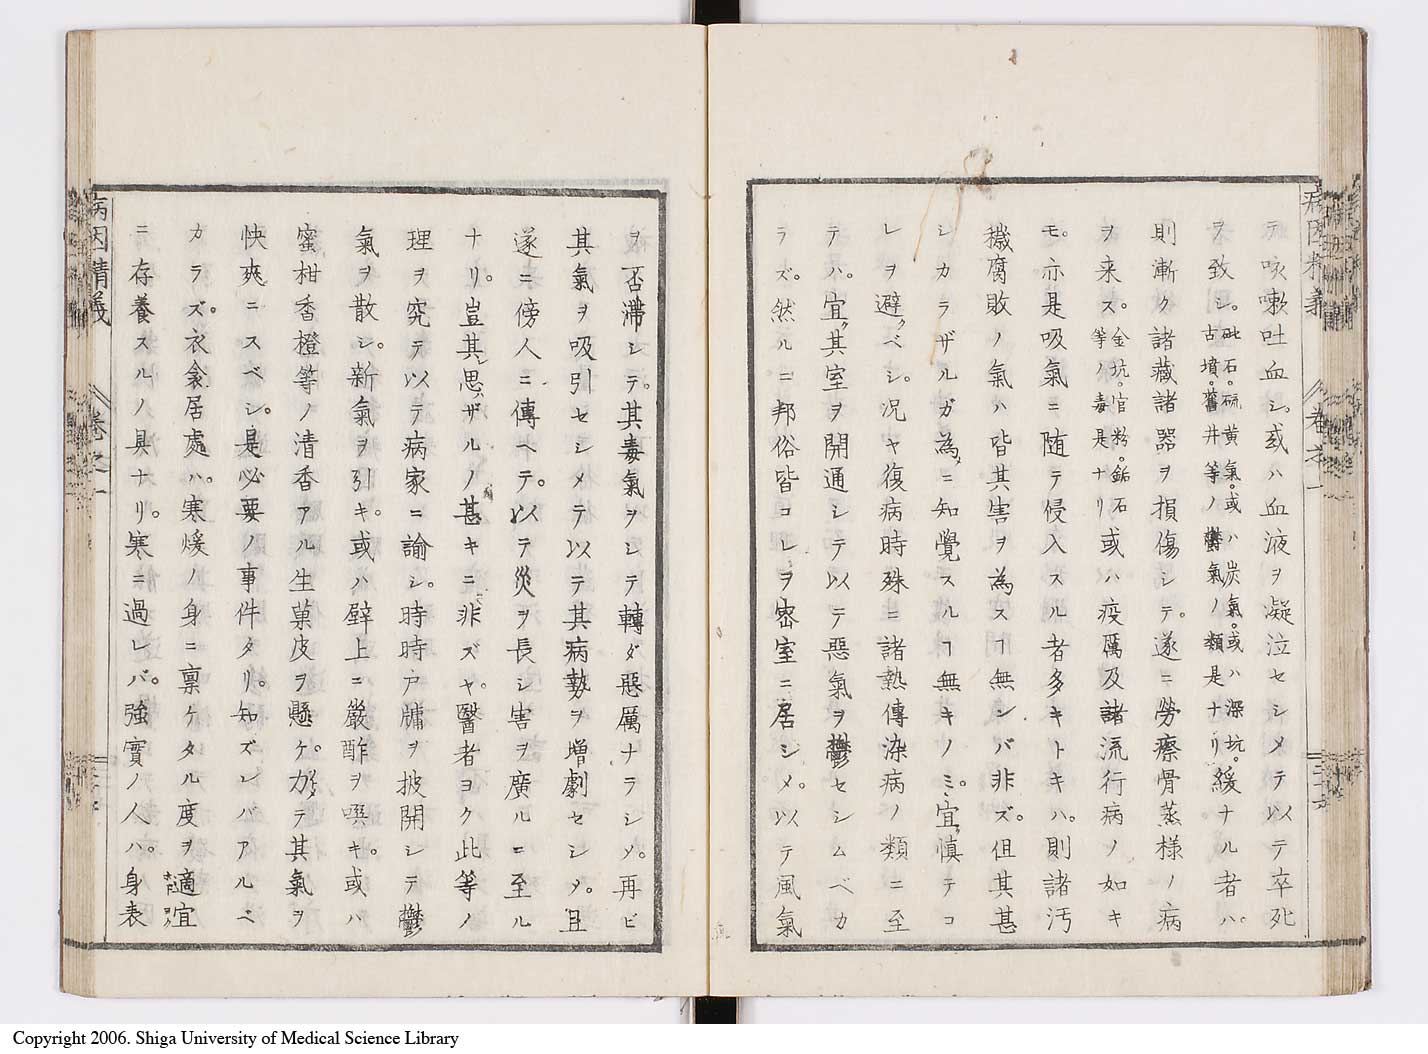 テ咳嗽吐血シ。或ハ血液ヲ凝泣セシメテ以テ卒死
ヲ致シ。砒石。硫黄氣。或ハ炭氣。或ハ深坑。
古墳。舊井等ノ欝氣ノ類是ナリ。緩ナル者ハ。
則漸ク諸藏諸器ヲ損傷シテ。遂ニ勞瘵骨蒸様ノ病
ヲ来ス。金坑。官粉。鉱石
等ノ毒是ナリ或ハ疫厲及諸流行病ノ如キ
モ。亦是吸氣ニ随テ侵入スル者多キトキハ。則諸汚
穢腐敗ノ氣ハ皆其害ヲ為スヿ無ンバ非ズ。但其甚
シカラザルガ為ニ知覺スルヿ無キノミ。宜ク慎テコ
レヲ避ベシ。况ヤ復病時殊ニ諸熱傳染病ノ類ニ至
テハ。宜ク其室ヲ開通シテ以テ惡氣ヲ欝セシムベカ
ラズ。然ルニ邦俗皆コレヲ密室ニ居シメ。以テ風氣
ヲ否滯シテ。其毒氣ヲシテ轉ダ惡厲ナラシメ。再ビ
其氣ヲ吸引セシメテ以テ其病勢ヲ増劇セシメ。且
遂ニ傍人ニ傳ヘテ。以テ災ヲ長シ害ヲ廣ルニ至ル
ナリ。豈其思ハザルノ甚キニ非ズヤ。醫者ヨク此等ノ
理ヲ究テ以テ病家ニ諭シ。時時戸牖ヲ披開シテ欝
氣ヲ散シ。新氣ヲ引キ。或ハ壁上ニ嚴酢ヲ噀キ。或ハ
蜜柑香橙等ノ清香アル生菓皮ヲ懸ケ。力テ其氣ヲ
快爽ニスベシ。是必要ノ事件タリ。知ズンバアルベ
カラズ。衣衾居處ハ。寒煖ノ身ニ稟ケタル度ヲ適宜
ニ存養スルノ具ナリ。寒ニ過レバ。強實ノ人ハ。身表
病因精義
巻之一
Copyright 2006. Shiga University of Medical Science Library